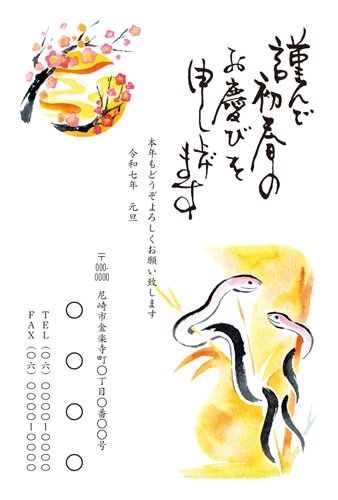 謹んで
初春の
お慶びを
申し上げ
ます
本年もどうぞよろしくお願い致します
令和七年　元旦
〒000-0000
尼崎市金楽寺町〇丁目〇番〇〇号
〇〇〇〇
TEL（〇六）〇〇〇〇ー〇〇〇〇
FAX（〇六）〇〇〇〇ー〇〇〇〇